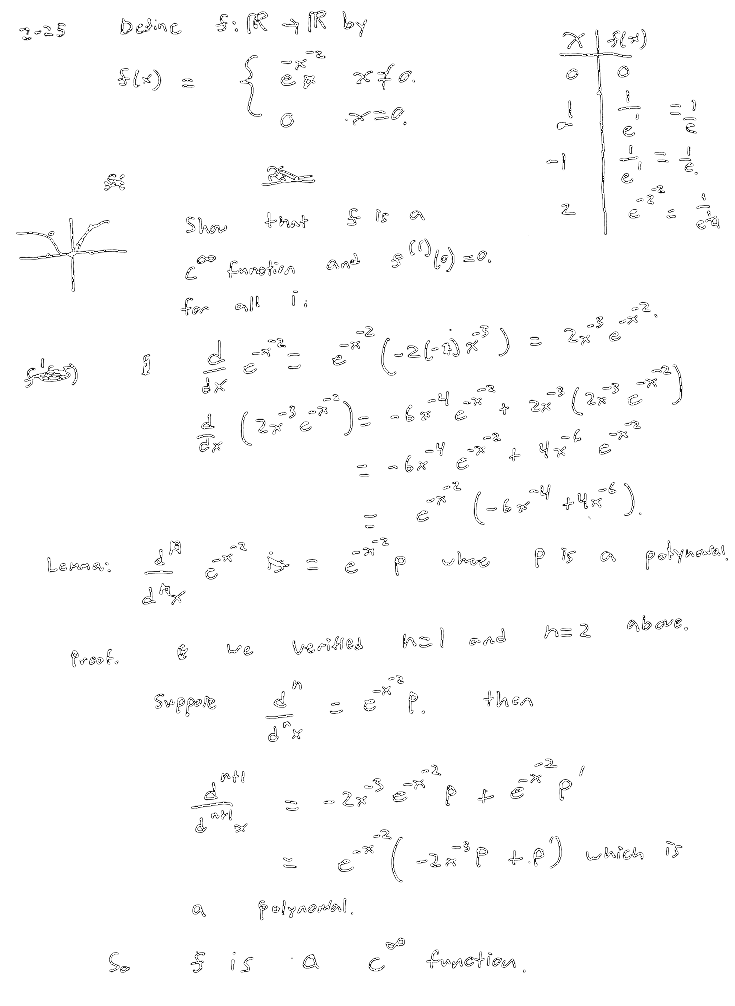 2-25 Define f: ℝ → ℝ by
f(x) = { e^{-x^{-2}} x ≠ 0.
0 x=0.
x | f(x)
0 | 0
1 | 1/e^1 = 1/e
-1 | 1/e^1 = 1/e.
2 | e^{-2^{-2}} = 1/e^{1/4}
Show that f is a
C^∞ function and f^{(i)}(0)=0.
for all i.
d/dx e^{-x^{-2}} = e^{-x^{-2}} (-2(-1) x^{-3}) = 2x^{-3} e^{-x^{-2}}.
d/dx (2x^{-3} e^{-x^{-2}}) = -6x^{-4} e^{-x^{-2}} + 2x^{-3} (2x^{-3} e^{-x^{-2}})
= -6x^{-4} e^{-x^{-2}} + 4x^{-6} e^{-x^{-2}}
= e^{-x^{-2}} (-6x^{-4} + 4x^{-6}).
Lemma: d^n/d^n x e^{-x^{-2}} is = e^{-x^{-2}} p where p is a polynomial.
Proof. we verified n=1 and n=2 above.
Suppose d^n/d^n x = e^{-x^{-2}} p. then
d^{n+1}/d^{n+1} x = -2x^{-3} e^{-x^{-2}} p + e^{-x^{-2}} p'
= e^{-x^{-2}} (-2x^{-3} p + p') which is
a polynomial.
So f is a C^∞ function.